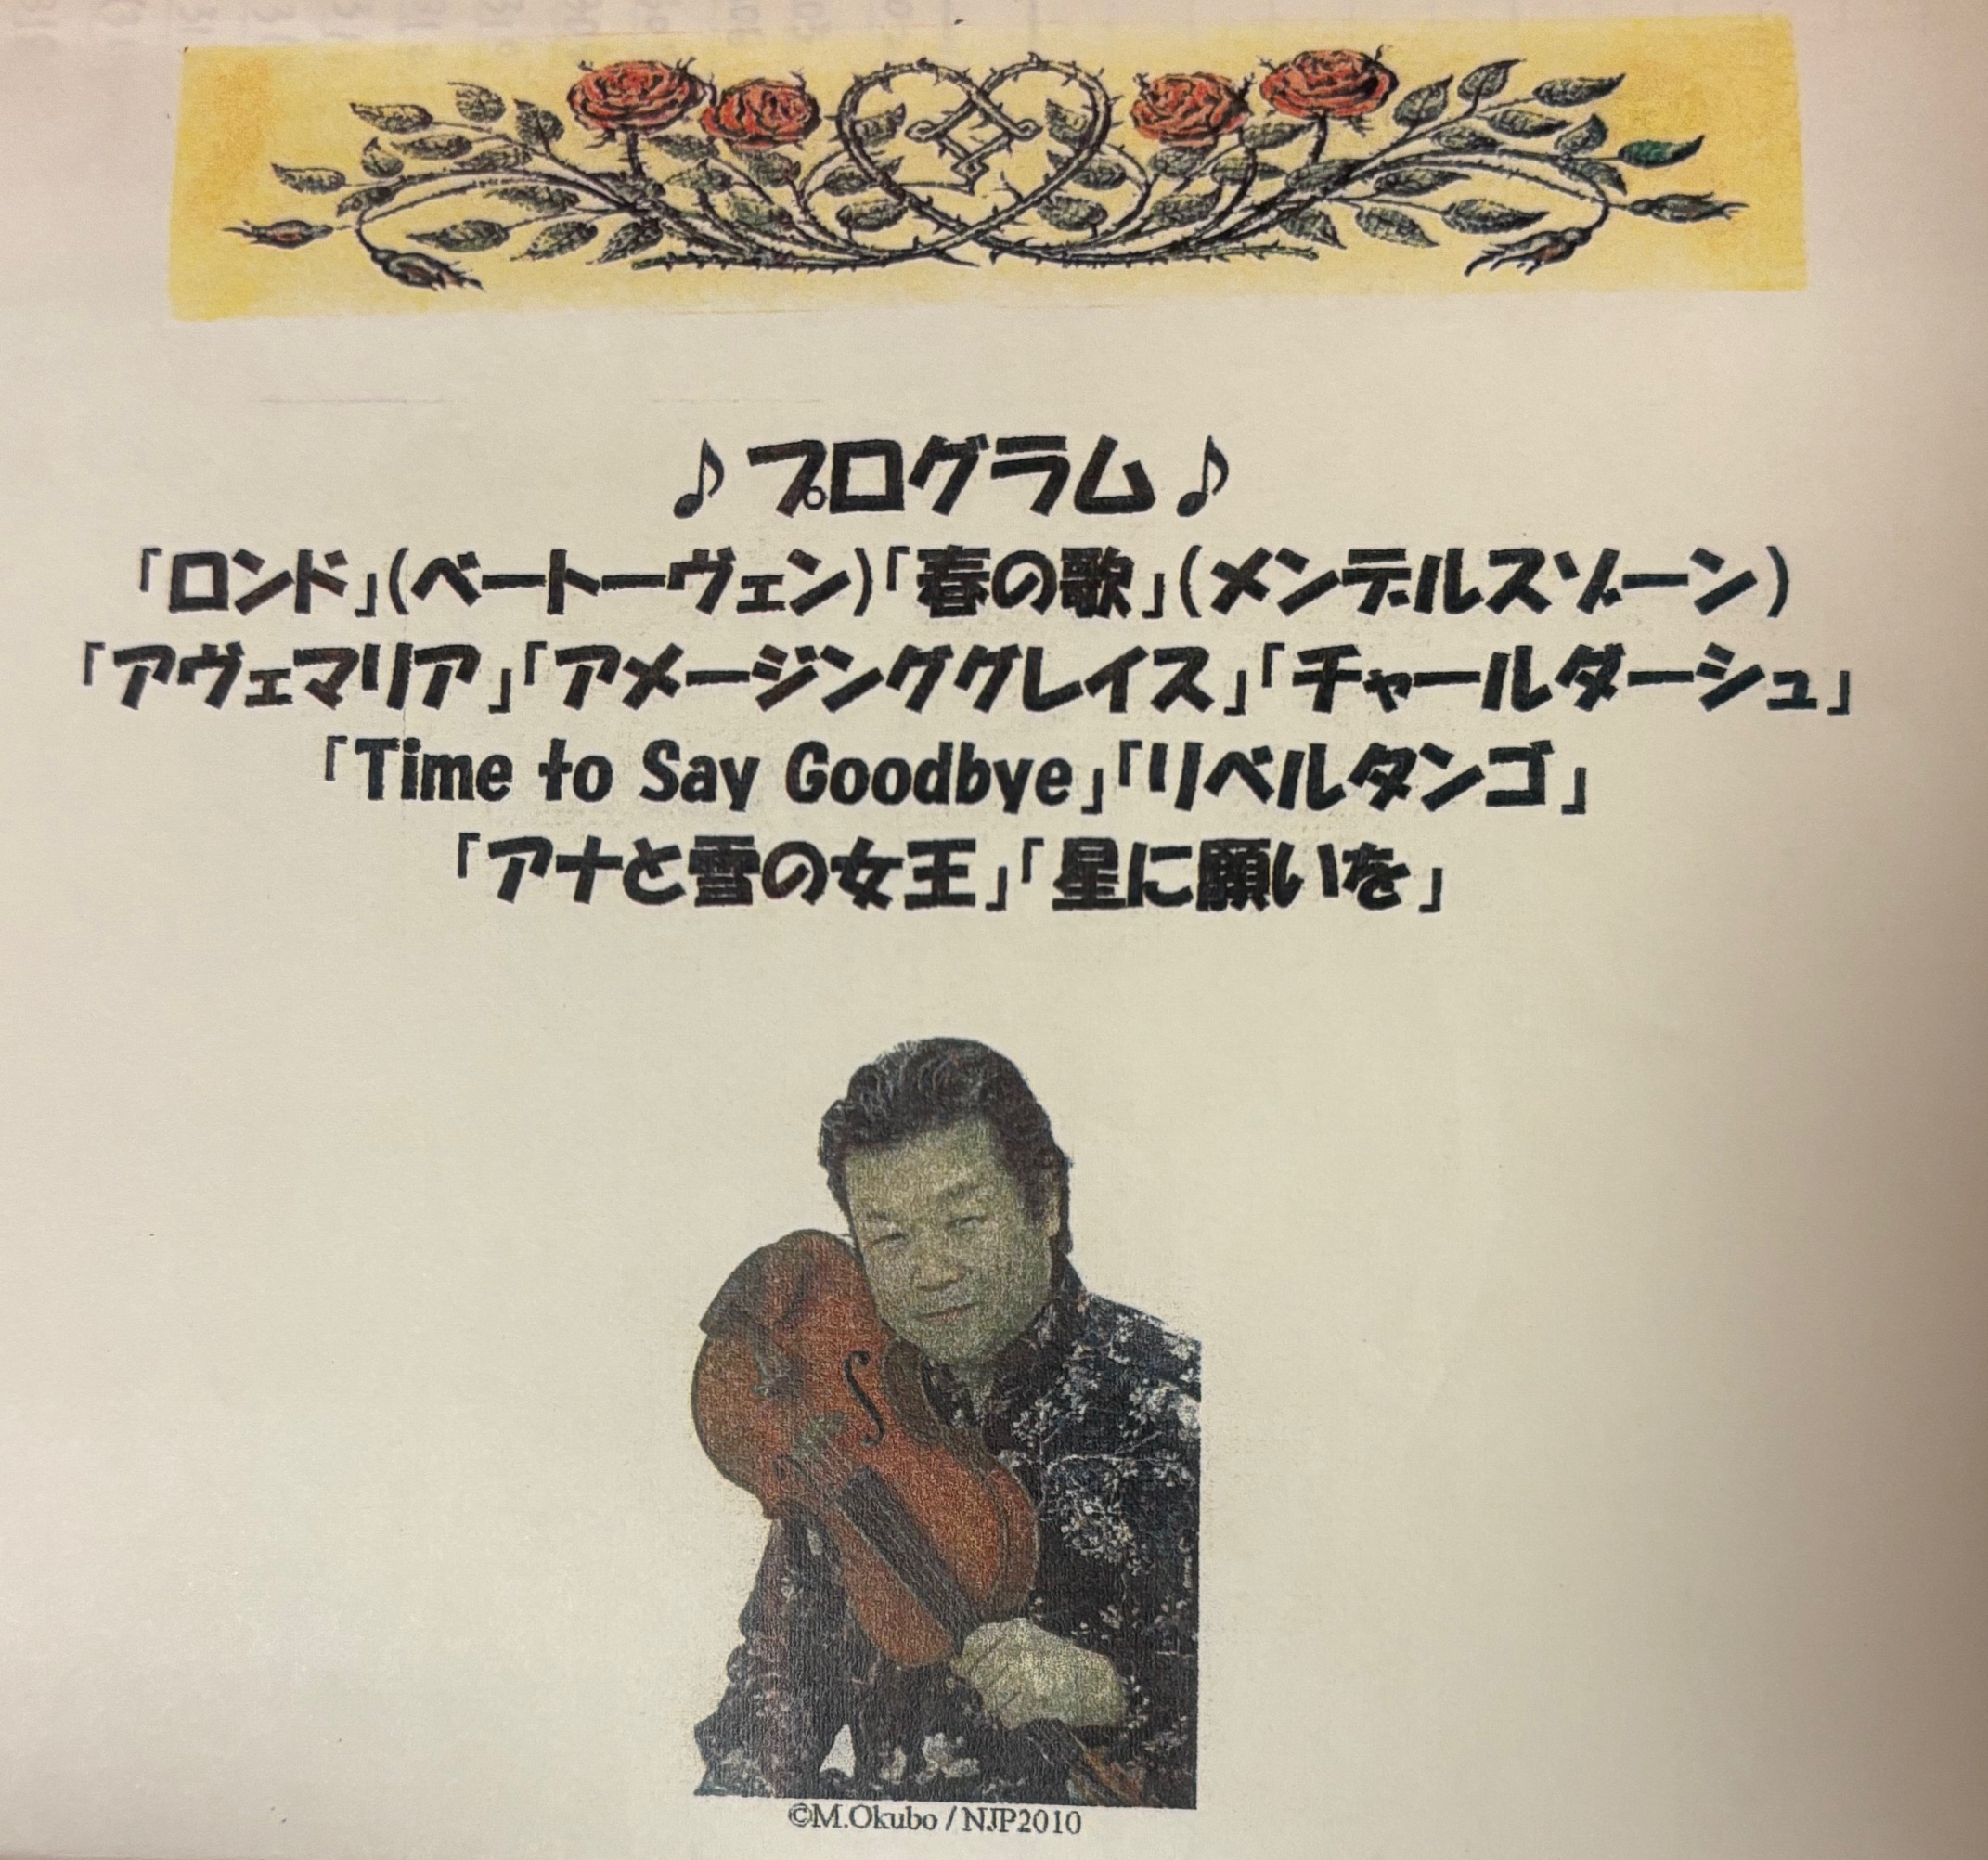 ♪プログラム♪
「ロンド」(ベートーヴェン)「春の歌」(メンデルスゾーン)
「アヴェマリア」「アメージンググレイス」「チャールダーシュ」
「Time to Say Goodbye」「リベルタンゴ」
「アナと雪の女王」「星に願いを」
©M.Okubo / NJP2010